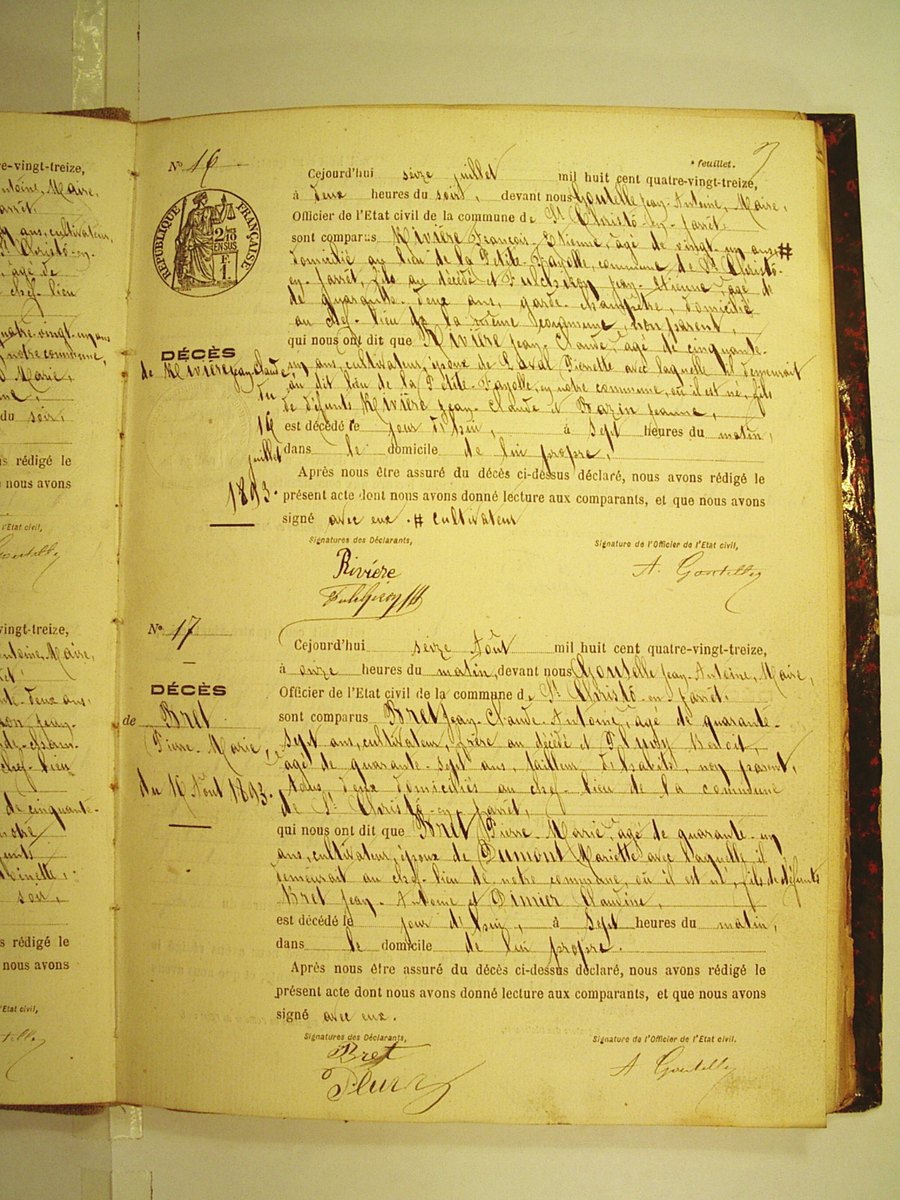 re-vingt-treize,
Antoine, Maire,
Jarret
ans, cultivateur,
Christô-en-
âgé de
chef-lieu
quatre-vingt-un ans
notre commune,
Marie,
du soir,
is rédigé le
nous avons
l'Etat civil,
vingt-treize,
Antoine, Maire,
deux ans,
Jean-
chef-lieu
de cinquante-
notre
soir,
s rédigé le
nous avons
l'Etat civil,
N° 16
e feuillet. 9
RÉPUBLIQUE FRANÇAISE
2/10 EN SUS
F 1
Cejourd'hui seize juillet mil huit cent quatre-vingt-treize,
à deux heures du soir, devant nous Goutelle Jean-Antoine, Maire,
Officier de l'Etat civil de la commune de St Christô-en-Jarret,
sont comparus Rivière François-Etienne, âgé de vingt-un ans #
domicilié au lieu de la Petite-Fayolle, commune de St Christô-
en-Jarret, fils au décédé et Fulchiron Jean-Etienne, âgé
de quarante-deux ans, garde-champêtre, domicilié
au chef-lieu de la même commune, non parent,
qui nous ont dit que Rivière Jean-Claude, âgé de cinquante-
un ans, cultivateur, époux de Laval Pierrette avec laquelle il demeurait
au dit lieu de la Petite-Fayolle, en notre commune, où il est né, fils
de défunts Rivière Jean-Claude et Bazin Jeanne,
est décédé le jour d'hui, à sept heures du matin,
dans le domicile de lui propre,
Après nous être assuré du décès ci-dessus déclaré, nous avons rédigé le
présent acte dont nous avons donné lecture aux comparants, et que nous avons
signé avec eux. # cultivateur
DÉCÈS
de Rivière Jean-Claude
du
16
juillet
1893.
Signatures des Déclarants,
Signature de l'Officier de l'Etat civil,
Rivière
A. Goutelle
N° 17
Cejourd'hui seize Août mil huit cent quatre-vingt-treize,
à onze heures du matin, devant nous Goutelle Jean-Antoine, Maire,
Officier de l'Etat civil de la commune de St Christô-en-Jarret
sont comparus Bret Jean-Claude-Antoine, âgé de quarante-
sept ans, cultivateur, frère au décédé et Fleury Benoit,
âgé de quarante-sept ans, tailleur d'habits, non parent,
tous deux domiciliés au chef-lieu de la commune
de St Christô-en-Jarret,
qui nous ont dit que Bret Pierre-Marie, âgé de quarante-un
ans, cultivateur, époux de Dumont Mariette avec laquelle il
demeurait au chef-lieu de notre commune, où il est né, fils de défunts
Bret Jean-Antoine et Dimier Claudine,
est décédé le jour d'hui, à sept heures du matin,
dans le domicile de lui propre.
Après nous être assuré du décès ci-dessus déclaré, nous avons rédigé le
présent acte dont nous avons donné lecture aux comparants, et que nous avons
signé avec eux.
DÉCÈS
de Bret
Pierre-Marie,
du 16 Août 1893.
Signatures des Déclarants,
Signature de l'Officier de l'Etat civil.
Bret
Fleury
A Goutelle